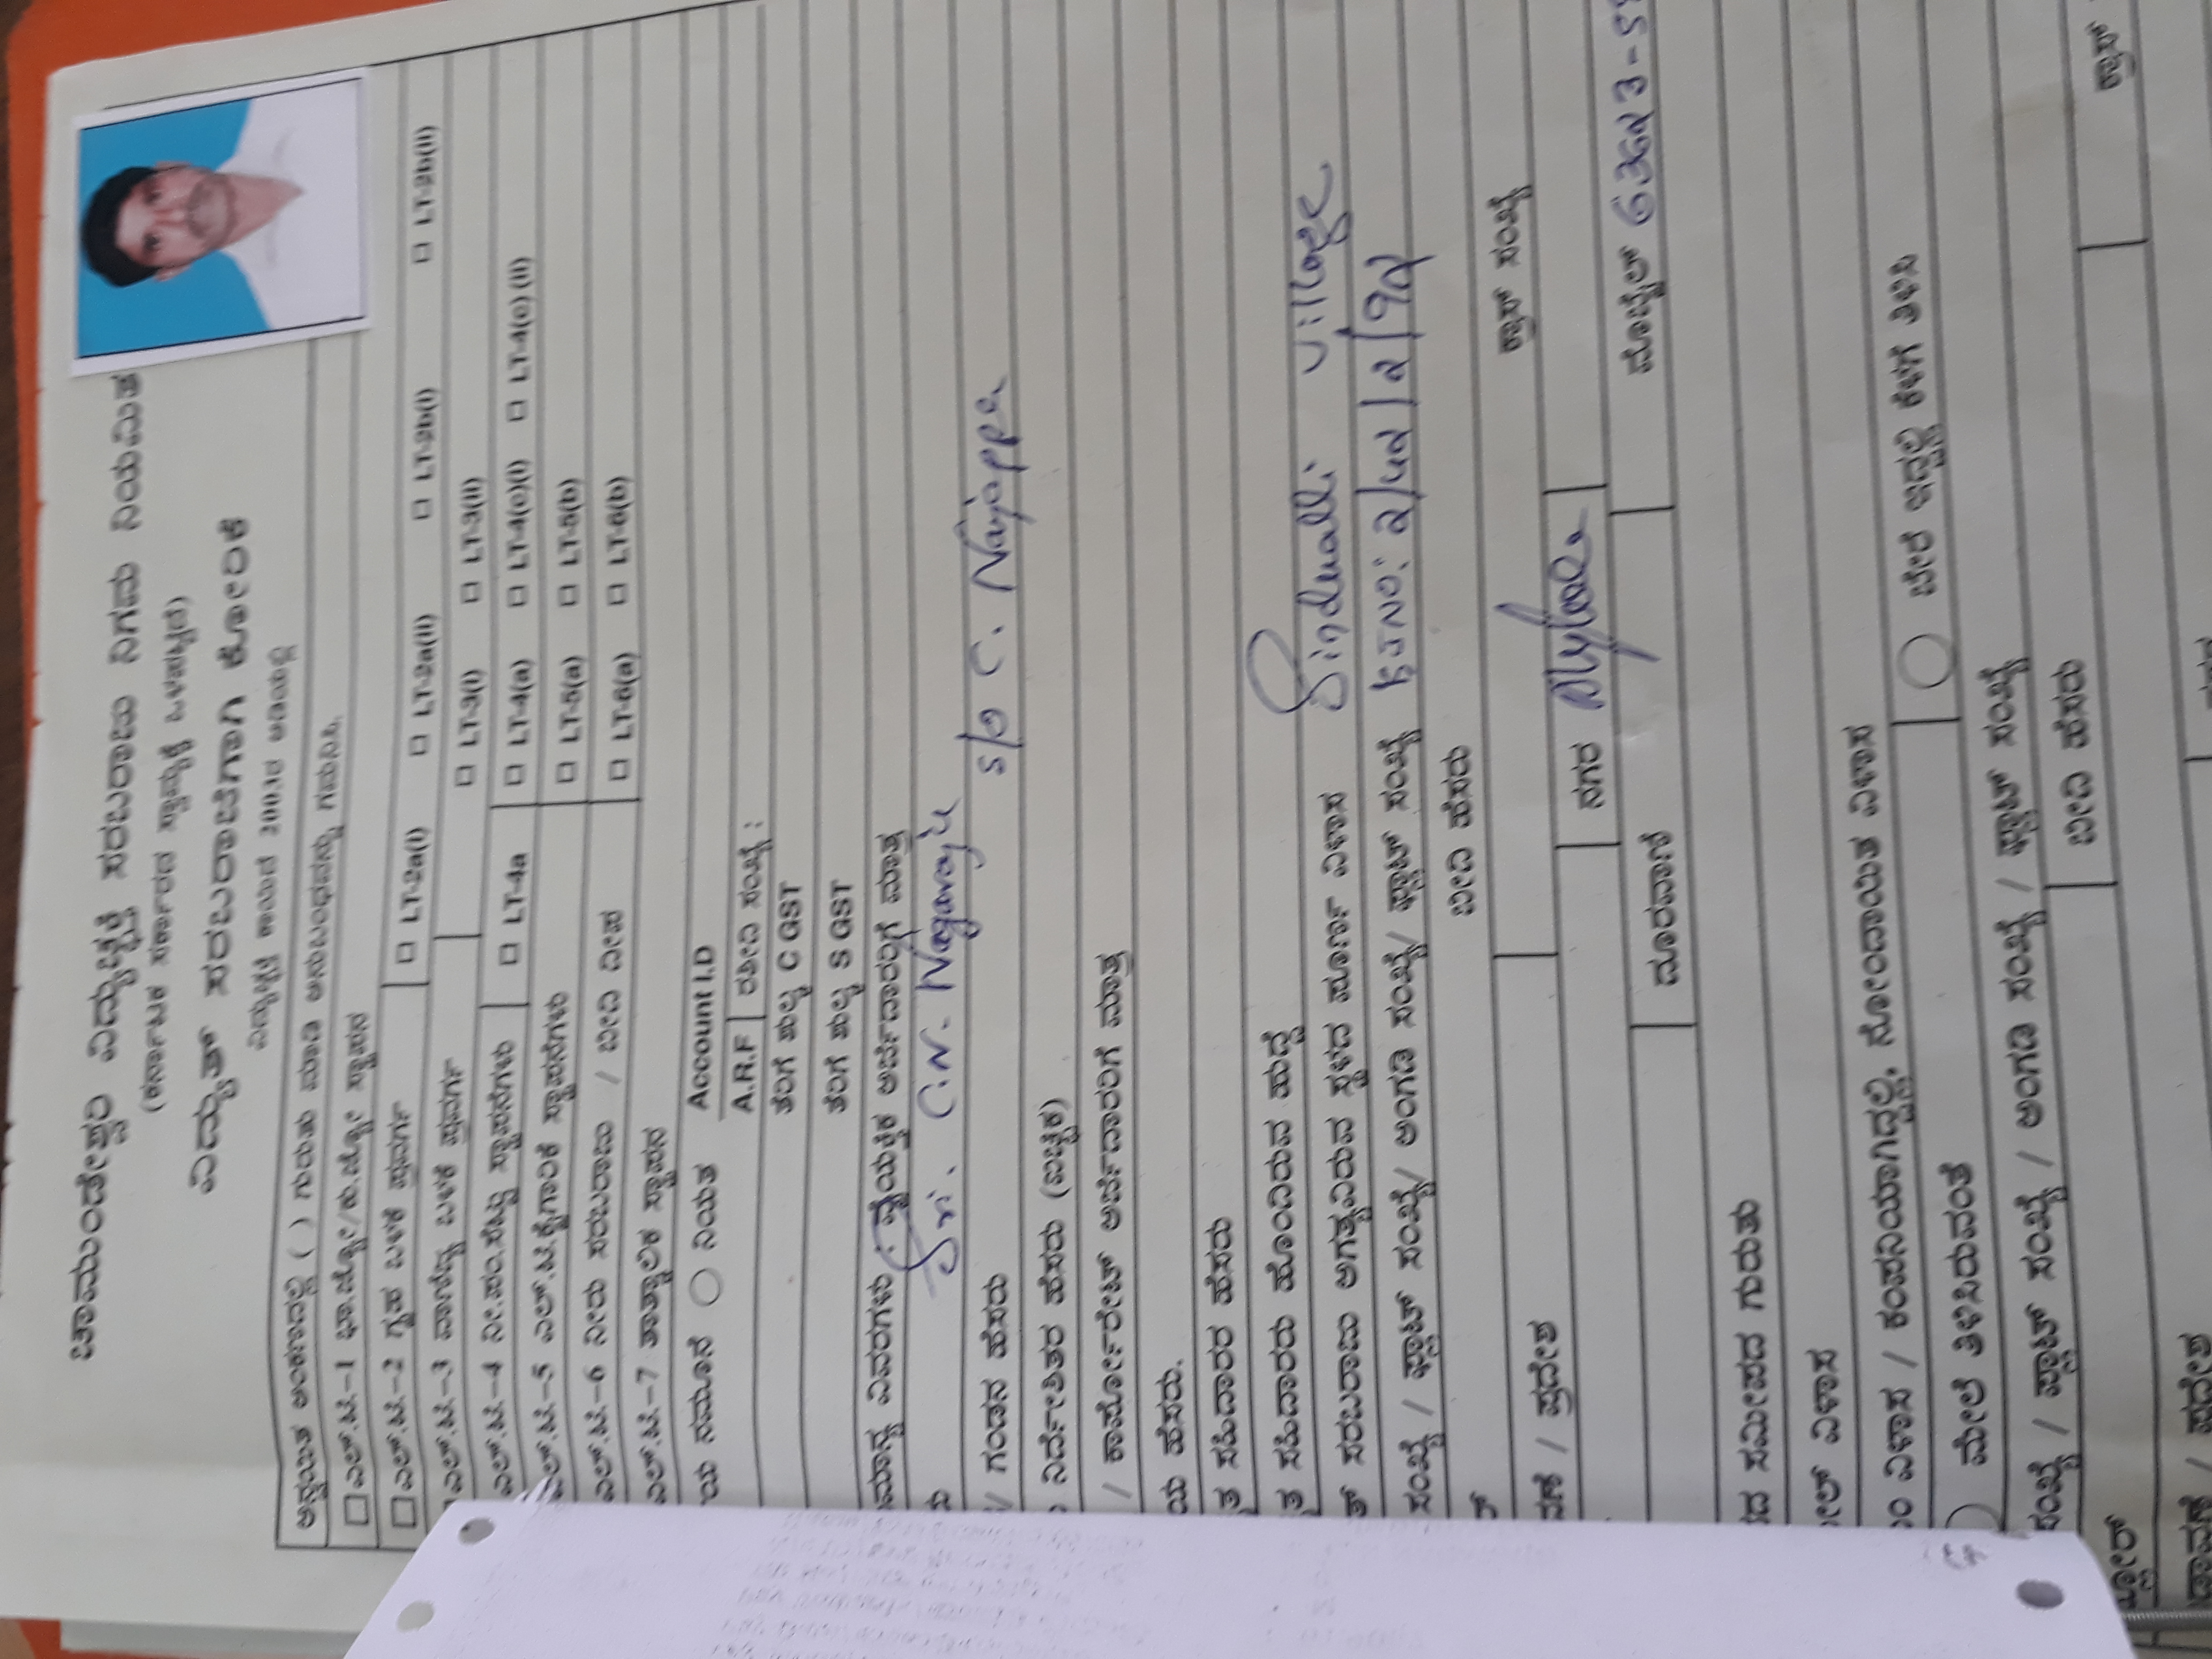 ಚಾಮುಂಡೇಶ್ವರಿ ವಿದ್ಯುಚ್ಛಕ್ತಿ ಸರಬರಾಜು ನಿಗಮ ನಿಯಮಿತ
(ಕರ್ನಾಟಕ ಸರ್ಕಾರದ ಸ್ವಾಮ್ಯಕ್ಕೆ ಒಳಪಟ್ಟಿದೆ)
ವಿದ್ಯುತ್ ಸರಬರಾಜಿಗಾಗಿ ಕೋರಿಕೆ
ವಿದ್ಯುಚ್ಛಕ್ತಿ ಕಾಯಿದೆ 2003ರ ಅಡಿಯಲ್ಲಿ
ಅನ್ವಯಿತ ಅಂಕಣದಲ್ಲಿ ( ) ಗುರುತು ಮಾಡಿ ಅನುಬಂಧವನ್ನು ಗಮನಿಸಿ.
□ ಎಲ್.ಟಿ.-1 ಭಾ.ಜ್ಯೋ/ಕು.ಜ್ಯೋ ಸ್ಥಾವರ
□ ಎಲ್.ಟಿ.-2 ಗೃಹ ಬಳಕೆ ಪ್ರವರ್ಗ □ LT-2a(i) □ LT-2a(ii) □ LT-2b(i) □ LT-2b(ii)
ಎಲ್.ಟಿ.-3 ವಾಣಿಜ್ಯ ಬಳಕೆ ಪ್ರವರ್ಗ □ LT-3(i) □ LT-3(ii)
ಎಲ್.ಟಿ.-4 ನೀ.ಪಂ.ಸೆಟ್ಟು ಸ್ಥಾವರಗಳು □ LT-4a □ LT-4(a) □ LT-4(c)(i) □ LT-4(c) (ii)
ಎಲ್.ಟಿ.-5 ಎಲ್.ಟಿ.ಕೈಗಾರಿಕೆ ಸ್ಥಾವರಗಳು □ LT-5(a) □ LT-5(b)
ಎಲ್.ಟಿ.-6 ನೀರು ಸರಬರಾಜು / ಬೀದಿ ದೀಪ □ LT-6(a) □ LT-6(b)
ಎಲ್.ಟಿ.-7 ತಾತ್ಕಾಲಿಕ ಸ್ಥಾವರ
ಯ ನಮೂನೆ ○ ನಿಯತ Account I.D
A.R.F ರಶೀದಿ ಸಂಖ್ಯೆ :
ತೆರಿಗೆ ಶುಲ್ಕ C GST
ತೆರಿಗೆ ಶುಲ್ಕ S GST
ಮಾನ್ಯ ವಿವರಗಳು : ವೈಯಕ್ತಿಕ ಅರ್ಜಿದಾರರಿಗೆ ಮಾತ್ರ
Sri. C.N. Nagaraju
/ ಗಂಡನ ಹೆಸರು S/o C. Nanjappa
ನಿರ್ದೇಶಿತರ ಹೆಸರು (ಐಚ್ಛಿಕ)
/ ಕಾರ್ಪೋರೇಟ್ ಅರ್ಜಿದಾರರಿಗೆ ಮಾತ್ರ
ಯ ಹೆಸರು.
ತ ಸಹಿದಾರರ ಹೆಸರು
ತ ಸಹಿದಾರರು ಹೊಂದಿರುವ ಹುದ್ದೆ
ತ್ ಸರಬರಾಜು ಅಗತ್ಯವಿರುವ ಸ್ಥಳದ ಪೂರ್ಣ ವಿಳಾಸ Sinduvalli village
ಸಂಖ್ಯೆ / ಫ್ಲಾಟ್ ಸಂಖ್ಯೆ/ ಅಂಗಡಿ ಸಂಖ್ಯೆ/ ಪ್ಲಾಟ್ ಸಂಖ್ಯೆ
ಬೀದಿ ಹೆಸರು ಕ್ರಾಸ್ ಸಂಖ್ಯೆ
ವಣೆ / ಪ್ರದೇಶ ನಗರ
ದೂರವಾಣಿ ಮೊಬೈಲ್
ದ ಸಮೀಪದ ಗುರುತು
ಮೇಲ್ ವಿಳಾಸ
ವಿಳಾಸ / ಕಂಪನಿಯಾಗಿದ್ದಲ್ಲಿ, ನೋಂದಾಯಿತ ವಿಳಾಸ
ಮೇಲೆ ತಿಳಿಸಿರುವಂತೆ ○ ಬೇರೆ ಇದ್ದಲ್ಲಿ ಕೆಳಗೆ ತಿಳಿಸಿ
ಸಂಖ್ಯೆ / ಪ್ಲಾಟ್ ಸಂಖ್ಯೆ / ಅಂಗಡಿ ಸಂಖ್ಯೆ / ಫ್ಲಾಟ್ ಸಂಖ್ಯೆ
ಫ್ಲೋರ್ ಬೀದಿ ಹೆಸರು ಕ್ರಾಸ್
ಡಾವಣೆ / ಪ್ರದೇಶ